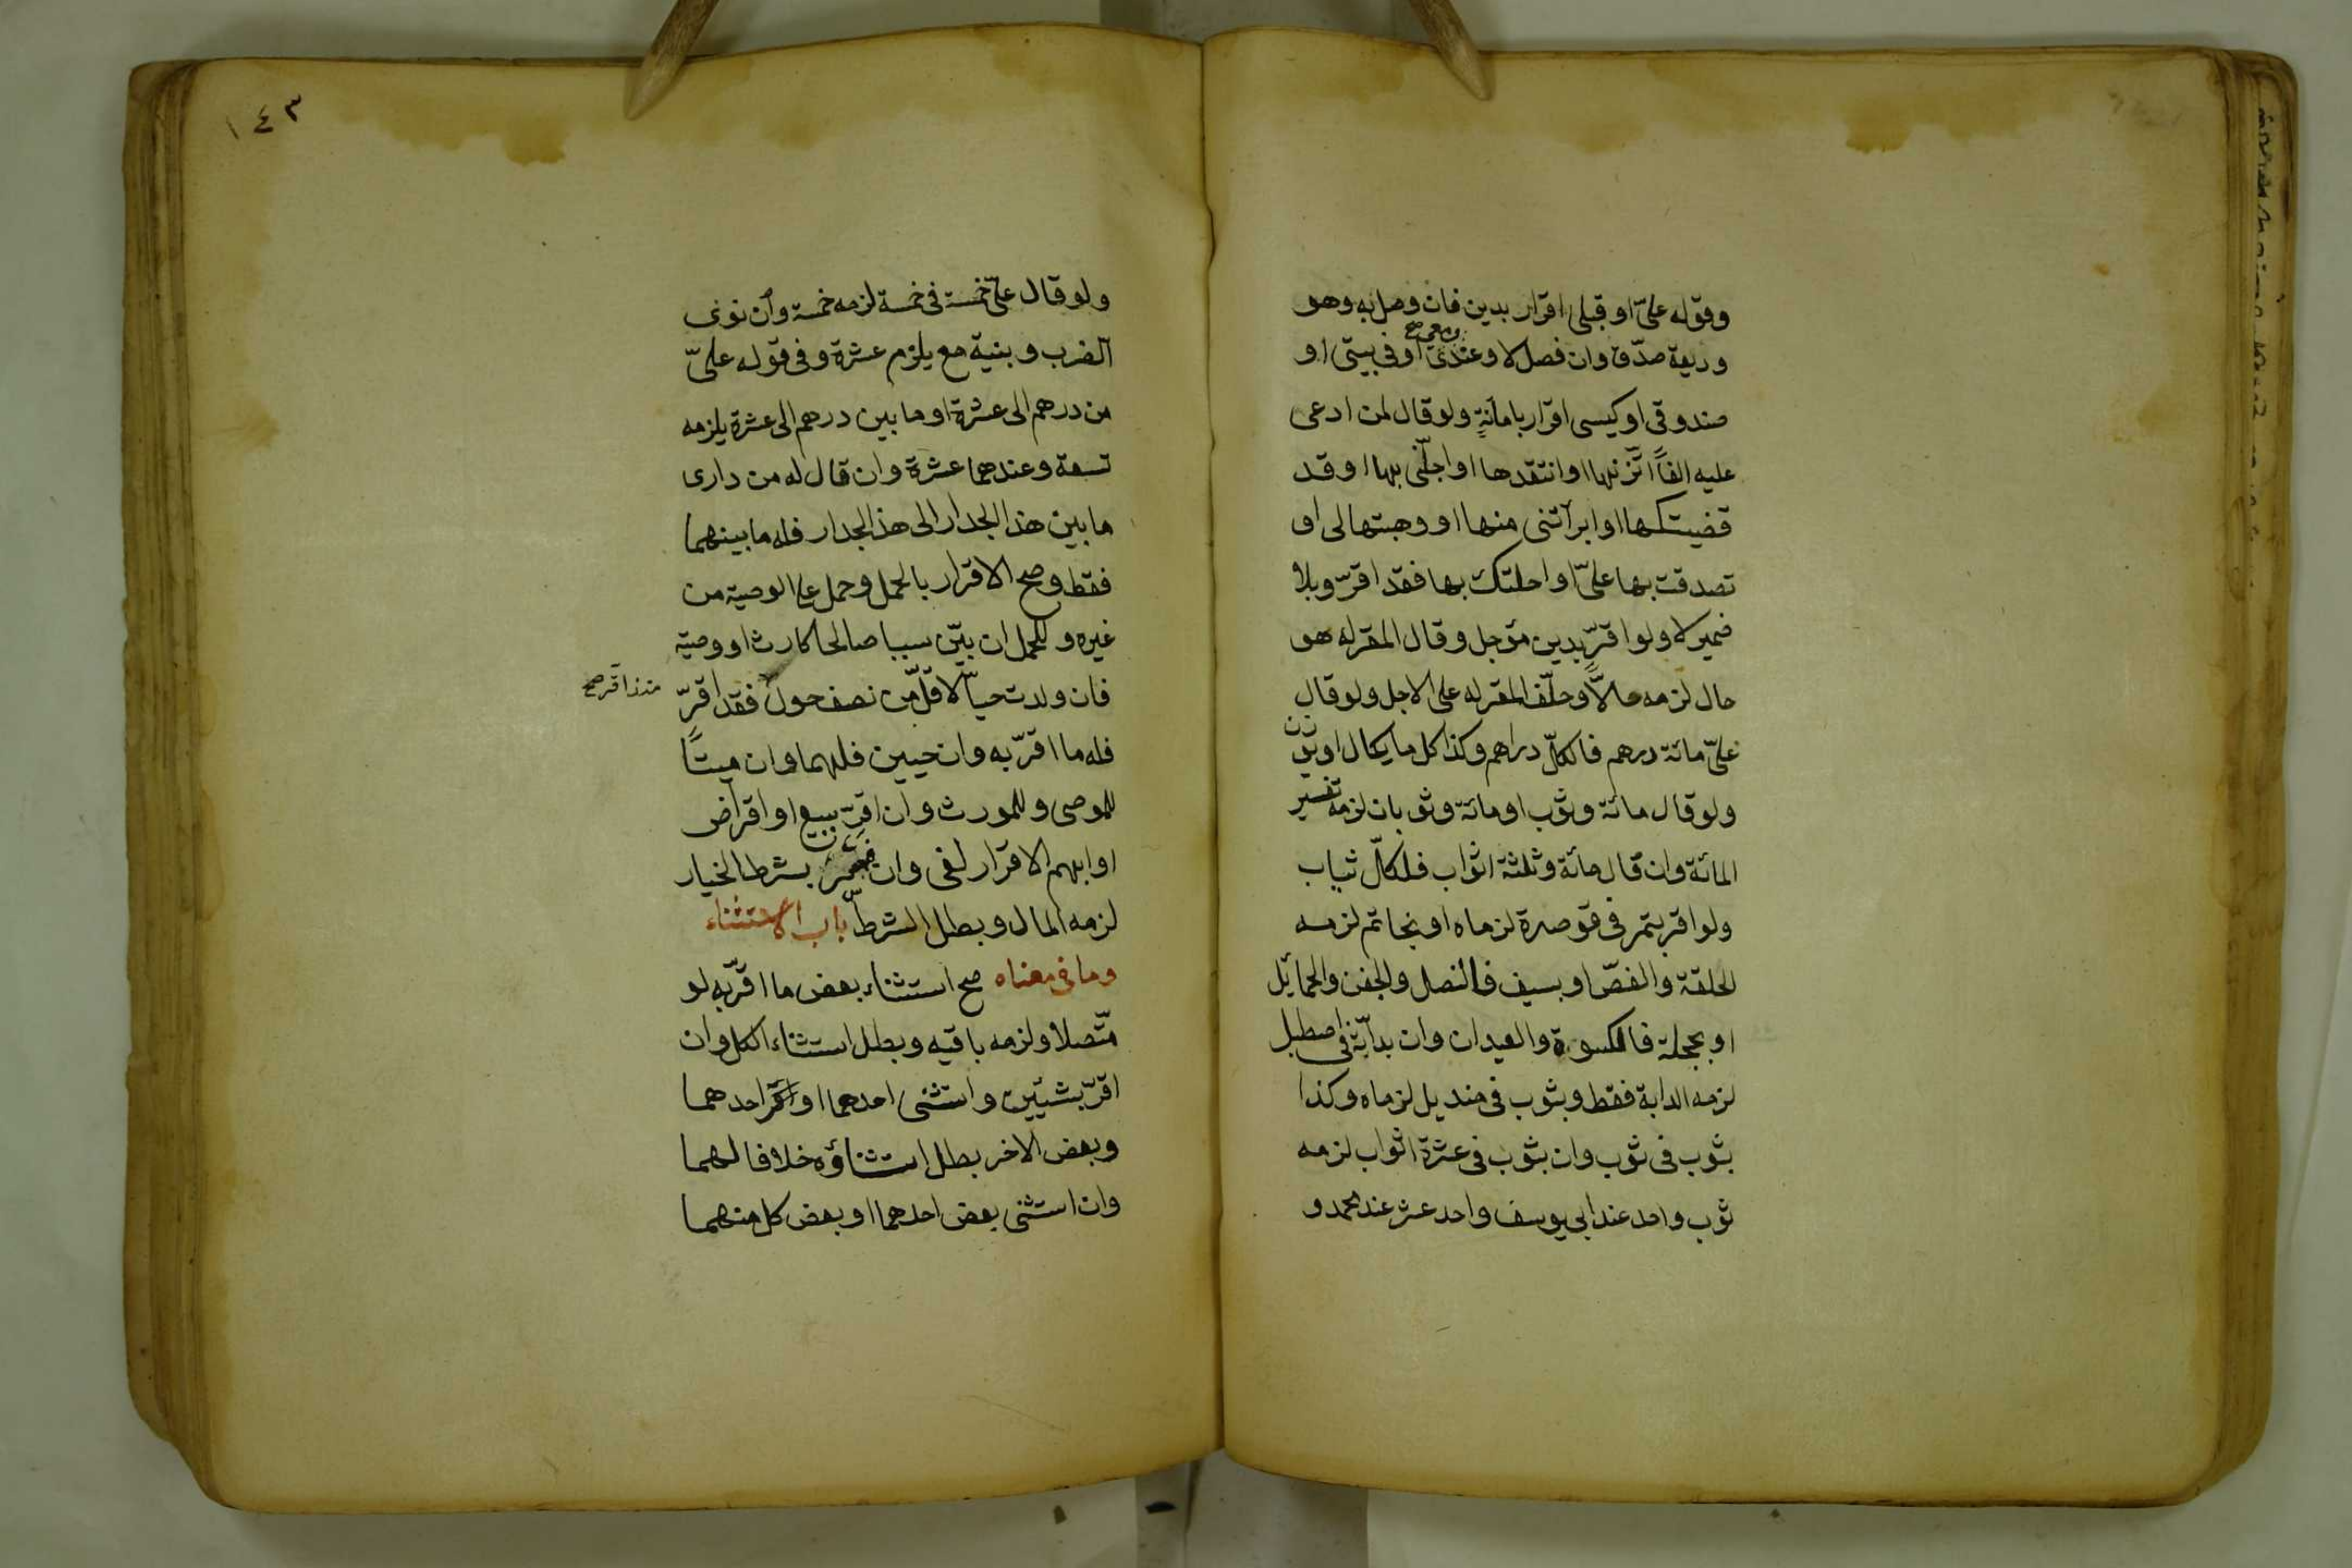 وقوله علىّ او قبلى اقرار بدين فان وصل به وهو
وديعة صدّق وان فصل لا وعندى او معى صح او فى بيتى او
صندوقى او كيسى اقرار بامانةٍ ولو قال لمن ادعى
عليه الفاً اتّزنها او انتقدها او اجلّنى بها او قد
قضيتكها او ابرأتنى منها او وهبتها لى او
تصدقت بها علىّ او احلتك بها فقد اقرّ وبلا
ضمير لا ولو اقرّ بدين مؤجل وقال المقر له هو
حال لزمه حالاًّ وحلّف المقر له على الاجل ولو قال
علىّ مائة درهم فالكلّ دراهم وكذا كل ما يكال او يوزن
ولو قال مائة وثوب او مائة وثوبان لزمه تفسير
المائة وان قال مائة وثلثة اثواب فلكلّ ثياب
ولو اقر بتمر فى قوصرة لزماه او بخاتم لزمه
الحلقة والفصّ او بسيف فالنصل والجفن والحمائل
او بحجلة فالكسوة والعيدان وان بدابّة فى اصطبل
لزمه الدابة فقط وبثوب فى منديل لزماه وكذا
بثوب فى ثوب وان بثوب فى عشرة اثواب لزمه
ثوب واحد عند ابى يوسف واحد عشر عند محمد و
١٤٣
ولو قال علىّ خمسة فى خمسة لزمه خمسة وان نوى
الضرب وبنية مع يلزم عشرة وفى قوله علىّ
من درهم الى عشرة او ما بين درهم الى عشرة يلزمه
تسعة وعندهما عشرة وان قال له من دارى
ما بين هذا الجدار الى هذا الجدار فله ما بينهما
فقط وصح الاقرار بالحمل وحمل على الوصية من
غيره وللحمل ان بيّن سببا صالحا كارث او وصية
فان ولدت حيّاً لاقلّ من نصف حول فقد اقرّ
منذ اقر صح
فله ما اقرّ به وان حيين فلهما وان ميتاً
للموصى وللمورث وان اقرّ ببيع او اقراض
او ابهم الاقرار لغى وان بشرط الخيار
لزمه المال وبطل الشرط باب الاستثناء
وما فى معناه صح استثناء بعض ما اقرّ به لو
متّصلا ولزمه باقيه وبطل استثناء الكل وان
اقرّ بشيئين واستثنى احدهما او احدهما
وبعض الاخر بطل استثناؤه خلافا لهما
وان استثنى بعض احدهما او بعض كل منهما